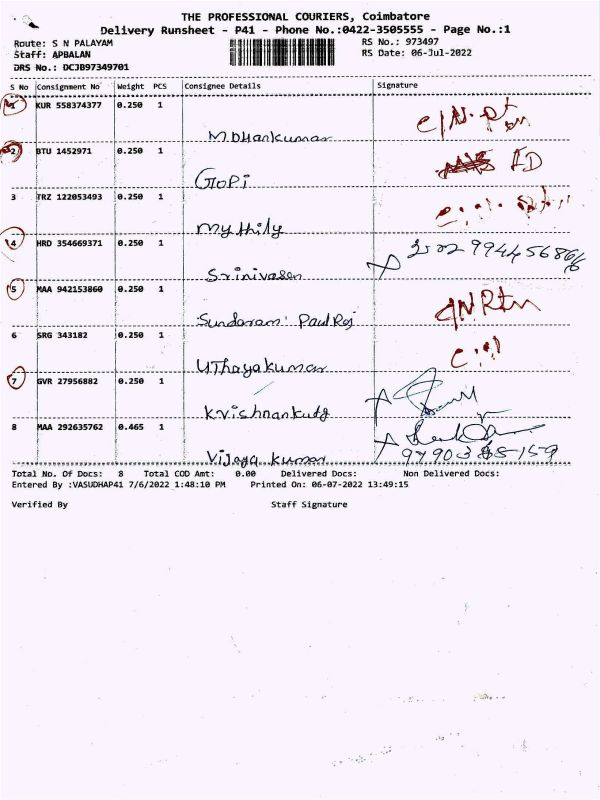 THE PROFESSIONAL COURIERS, Coimbatore
Delivery Runsheet - P41 - Phone No.:0422-3505555 - Page No.:1
Route: S N PALAYAM RS No.: 973497
Staff: APBALAN RS Date: 06-Jul-2022
DRS No.: DCJB97349701
S No Consignment No Weight PCS Consignee Details Signature
1 KUR 558374377 0.250 1
M.Dhankumar
2 BTU 1452971 0.250 1
GOPi
3 TRZ 122053493 0.250 1
mythily
4 HRD 354669371 0.250 1
Srinivasan
5 MAA 942153860 0.250 1
Sundaram Paul Raj
6 SRG 343182 0.250 1
Uthayakumar
7 GVR 27956882 0.250 1
8 MAA 292635762 0.465 1
Vijaya kumar
Total No. Of Docs: 8 Total COD Amt: 0.00 Delivered Docs: Non Delivered Docs:
Entered By :VASUDHAP41 7/6/2022 1:48:10 PM Printed On: 06-07-2022 13:49:15
Verified By Staff Signature